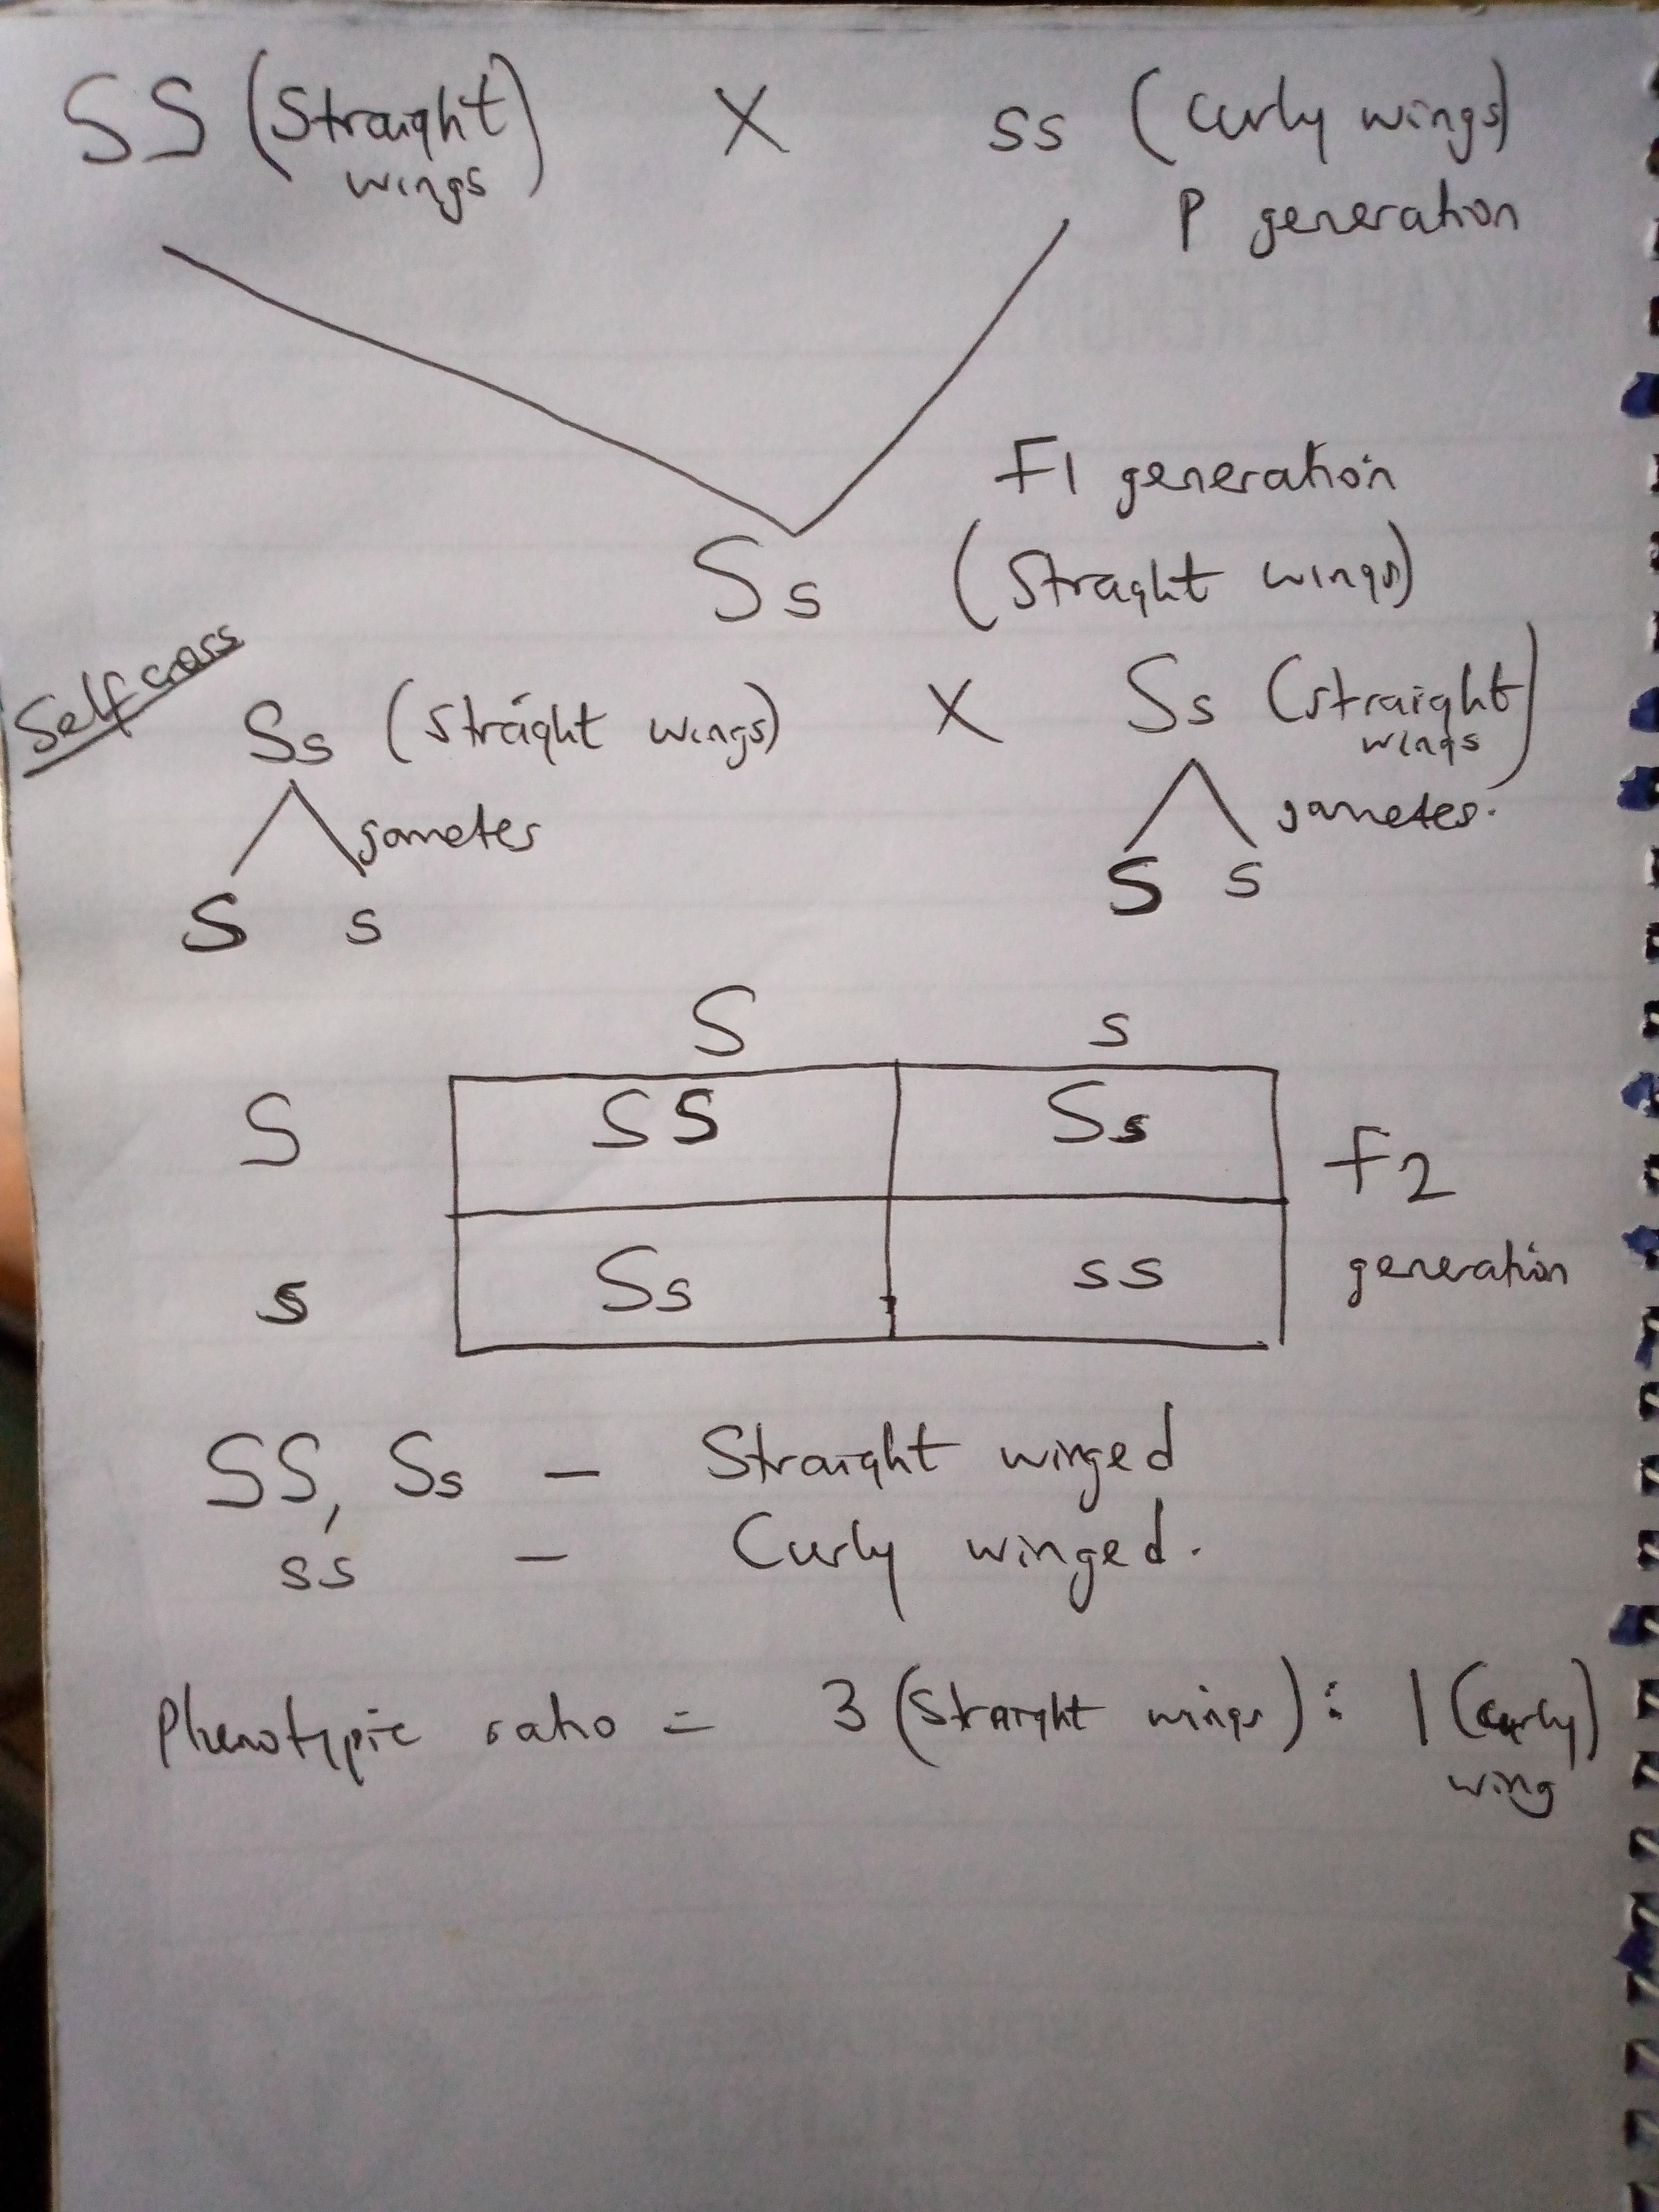 SS (Straight wings) X ss (Curly wings)
P generation
F1 generation
Ss (Straght wings)
Self cross
Ss (Straight wings) X Ss (straight wings)
gametes gametes.
S s S s
S s
S SS Ss F2
s Ss ss generation
SS, Ss - Straight winged
ss - Curly winged.
Phenotypic ratio = 3 (Straight wings) : 1 (curly) wing